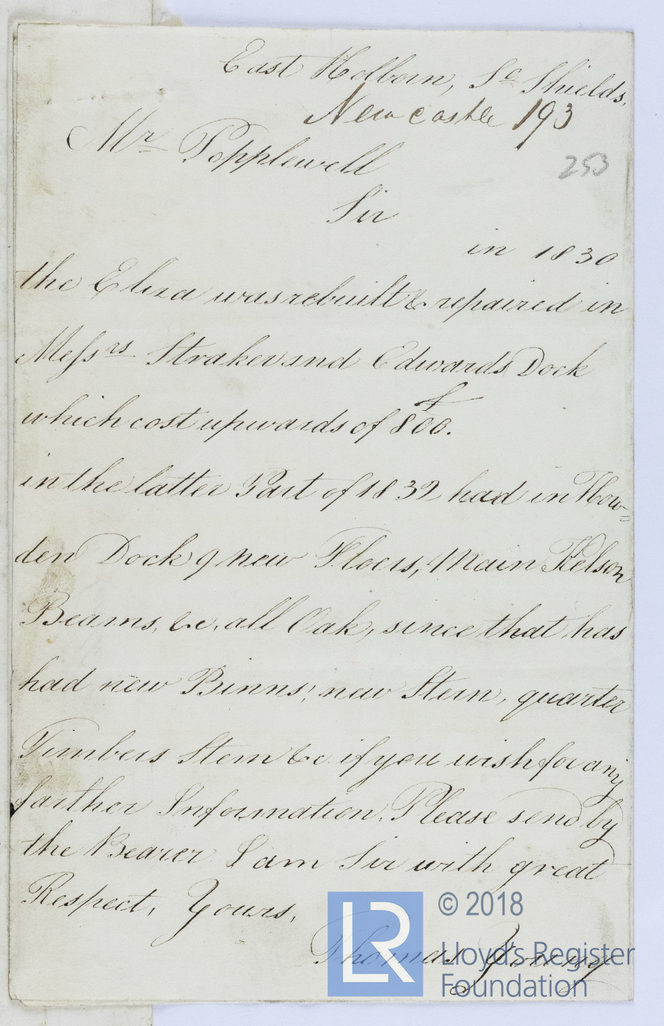 East Holborn, So Shields,
Newcastle 193
253
Mr Popplewell
Sir
in 1830
the Eliza was rebuilt & repaired in
Messrs Straker and Edwards Dock
which cost upwards of £800.
in the latter Part of 1832 had in How=
den Dock 9 New Floers, Main Kelson
Beams, &c, all Oak, since that has
had new Binns, new Stern, quarter
Timbers Stem &c. if you wish for any
farther Information, Please send by
the Bearer I am Sir with great
Respect, Yours,
Thomas Young
LR
© 2018
Lloyd's Register
Foundation